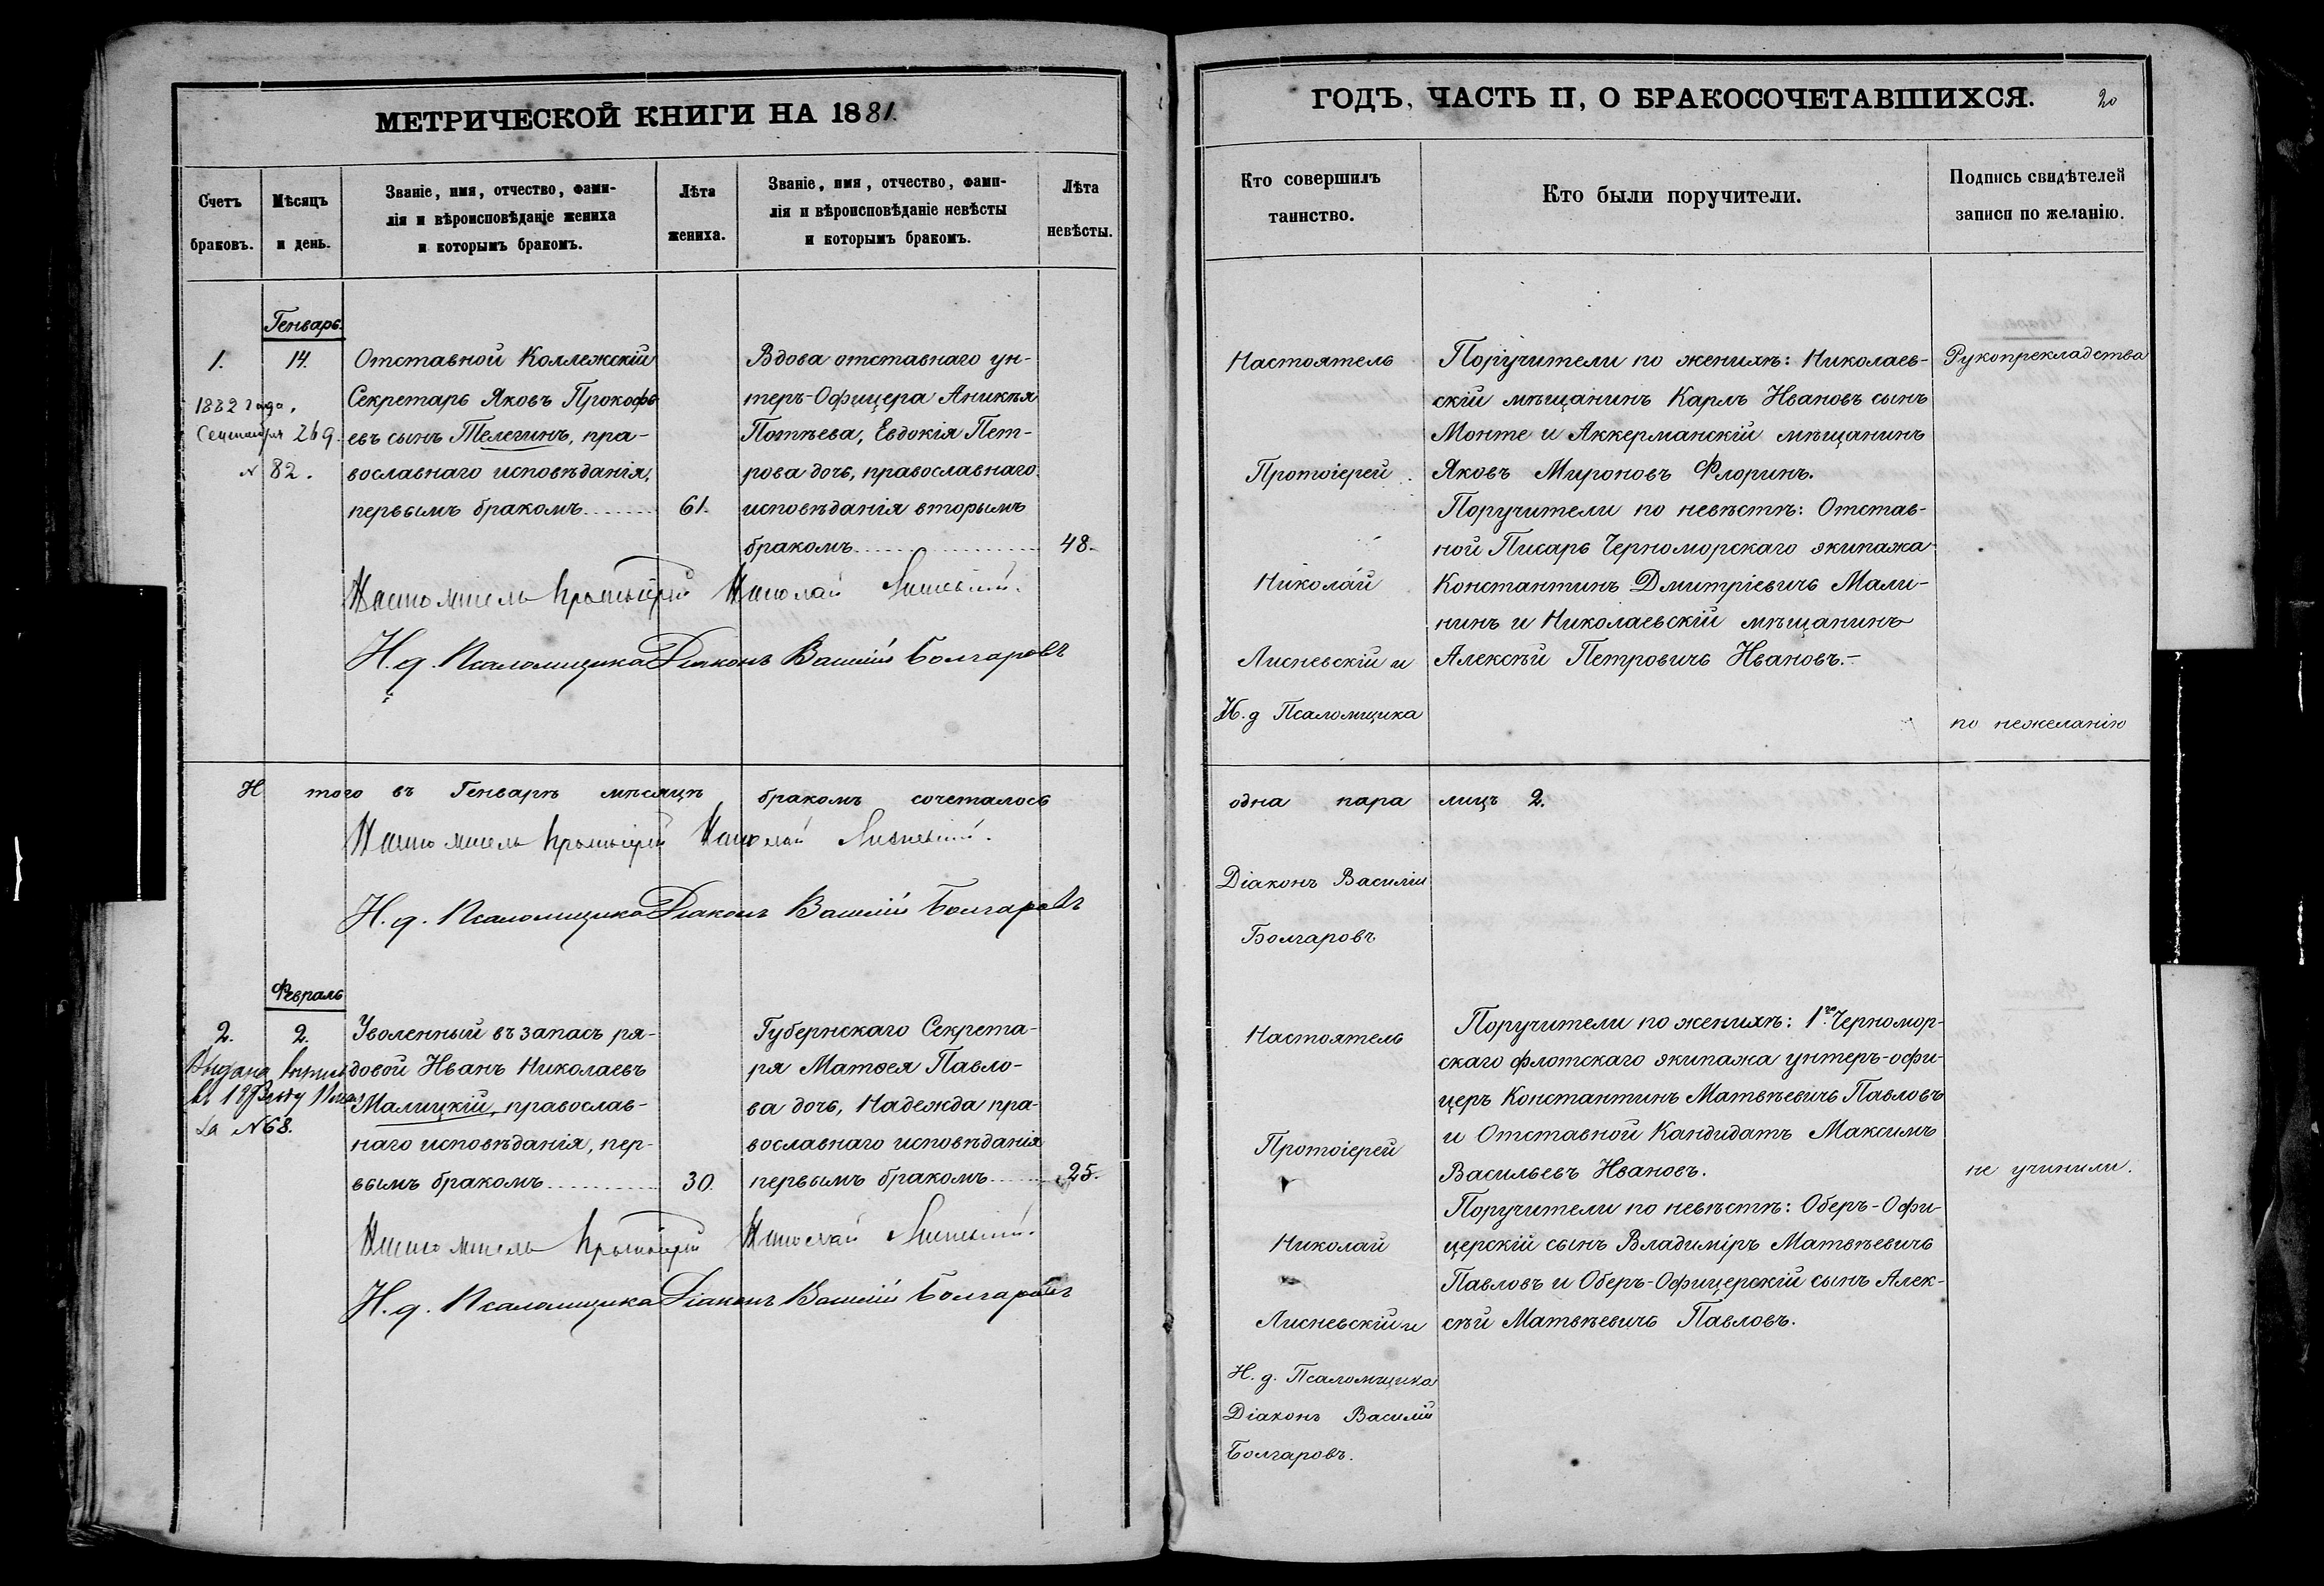 МЕТРИЧЕСКОЙ КНИГИ НА 1881.
Счетъ
браковъ.
Мѣсяцъ
и день.
Званіе, имя, отчество, фами-
лія и вѣроисповѣданіе жениха
и которымъ бракомъ.
Лѣта
жениха.
Званіе, имя, отчество, фами-
лія и вѣроисповѣданіе невѣсты
и которымъ бракомъ.
Лѣта
невѣсты.
Генварь.
1.
14.
1882 года.
Сентября 26 д.
№ 82.
Отставной Коллежскій
Секретарь Яковъ Прокофь
евъ сынъ Телегинъ, пра-
вославнаго исповѣданія,
первымъ бракомъ
61.
Вдова отставнаго ун-
теръ-Офицера Аникѣя
Потѣева, Евдокія Пет-
рова дочь, православнаго
исповѣданія вторымъ
бракомъ
48.
Настоятель Протоіерей Николай Лисневскій.
И. д. Псаломщика Діаконъ Василій Болгаровъ
И того въ Генварѣ мѣсяцѣ бракомъ сочеталось
Настоятель Протоіерей Николай Лисневскій.
И. д. Псаломщика Діаконъ Василій Болгаровъ
Февраль
2.
2.
Выдана
№ 68.
Уволенный въ запасъ ря-
довой Иванъ Николаевъ
Малицкій, православ-
наго исповѣданія, пер-
вымъ бракомъ
30.
Губернскаго Секрета-
ря Матѳея Павло-
ва дочь, Надежда пра-
вославнаго исповѣданія
первымъ бракомъ
25.
Настоятель Протоіерей Николай Лисневскій.
И. д. Псаломщика Діаконъ Василій Болгаровъ
ГОДЪ, ЧАСТЬ II, О БРАКОСОЧЕТАВШИХСЯ.
20
Кто совершилъ
таинство.
Кто были поручители.
Подпись свидѣтелей
записи по желанію.
Настоятель
Протоіерей
Николай
Лисневскій и
И. д Псаломщика
Поручители по женихѣ: Николаев-
скій мѣщанинъ Карлъ Ивановъ сынъ
Монте и Аккерманскій мѣщанинъ
Яковъ Мироновъ Флоринъ.
Поручители по невѣстѣ: Отстав-
ной Писарь Черноморскаго экипажа
Константинъ Дмитріевичъ Мали-
нинъ и Николаевскій мѣщанинъ
Алексѣй Петровичъ Ивановъ.-
Рукопрекладства
по нежеланію
одна пара лицъ 2.
Діаконъ Василій
Болгаровъ
Настоятель
Протоіерей
Николай
Лисневскій и
И. д. Псаломщика
Діаконъ Василій
Болгаровъ.
Поручители по женихѣ: 1го Черномор-
скаго флотскаго экипажа унтеръ-офи-
церъ Константинъ Матвѣевичъ Павловъ
и Отставной Кандидатъ Максимъ
Васильевъ Ивановъ.
Поручители по невѣстѣ: Оберъ-Офи-
церскій сынъ Владиміръ Матвѣевичъ
Павловъ и Оберъ-Офицерскій сынъ Алек-
сѣй Матвѣевичъ Павловъ.
не учинили.